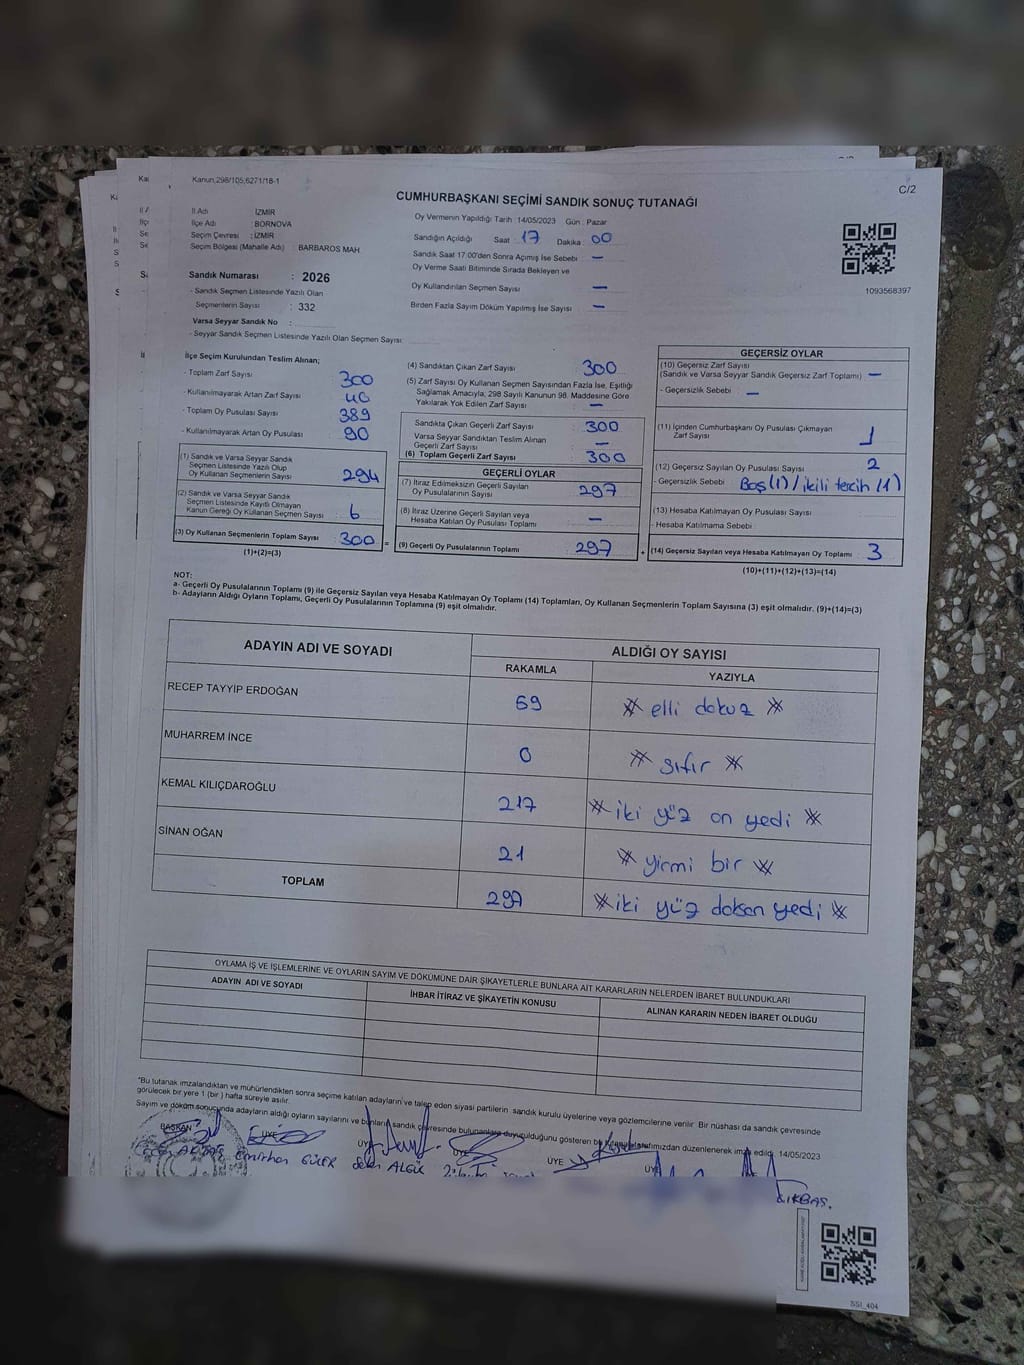 Kanun,298/105,6271/18-1
C/2
CUMHURBAŞKANI SEÇİMİ SANDIK SONUÇ TUTANAĞI
İl Adı : İZMİR
İlçe Adı : BORNOVA
Seçim Çevresi : İZMİR
Seçim Bölgesi (Mahalle Adı) BARBAROS MAH
Sandık Numarası : 2026
- Sandık Seçmen Listesinde Yazılı Olan
Seçmenlerin Sayısı : 332
Varsa Seyyar Sandık No :
- Seyyar Sandık Seçmen Listesinde Yazılı Olan Seçmen Sayısı:
Oy Vermenin Yapıldığı Tarih 14/05/2023 Gün : Pazar
Sandığın Açıldığı Saat : 17 Dakika : 00
Sandık Saat 17.00'den Sonra Açımış İse Sebebi –
Oy Verme Saati Bitiminde Sırada Bekleyen ve
Oy Kullandırılan Seçmen Sayısı –
Birden Fazla Sayım Döküm Yapılmış İse Sayısı –
1093568397
İlçe Seçim Kurulundan Teslim Alınan;
- Toplam Zarf Sayısı 300
- Kullanılmayarak Artan Zarf Sayısı 40
- Toplam Oy Pusulası Sayısı 389
- Kullanılmayarak Artan Oy Pusulası 90
(1) Sandık ve Varsa Seyyar Sandık
Seçmen Listesinde Yazılı Olup
Oy Kullanan Seçmenlerin Sayısı 294
(2) Sandık ve Varsa Seyyar Sandık
Seçmen Listesinde Kayıtlı Olmayan
Kanun Gereği Oy Kullanan Seçmen Sayısı 6
(3) Oy Kullanan Seçmenlerin Toplam Sayısı 300
(1)+(2)=(3)
=
(4) Sandıktan Çıkan Zarf Sayısı 300
(5) Zarf Sayısı Oy Kullanan Seçmen Sayısından Fazla İse, Eşitliği
Sağlamak Amacıyla, 298 Sayılı Kanunun 98. Maddesine Göre
Yakılarak Yok Edilen Zarf Sayısı –
Sandıkta Çıkan Geçerli Zarf Sayısı 300
Varsa Seyyar Sandıktan Teslim Alınan
Geçerli Zarf Sayısı –
(6) Toplam Geçerli Zarf Sayısı 300
GEÇERLİ OYLAR
(7) İtiraz Edilmeksizin Geçerli Sayılan
Oy Pusulalarının Sayısı 297
(8) İtiraz Üzerine Geçerli Sayılan veya
Hesaba Katılan Oy Pusulası Toplamı –
(9) Geçerli Oy Pusulalarının Toplamı 297
+
GEÇERSİZ OYLAR
(10) Geçersiz Zarf Sayısı
(Sandık ve Varsa Seyyar Sandık Geçersiz Zarf Toplamı) –
- Geçersizlik Sebebi –
(11) İçinden Cumhurbaşkanı Oy Pusulası Çıkmayan
Zarf Sayısı 1
(12) Geçersiz Sayılan Oy Pusulası Sayısı 2
- Geçersizlik Sebebi Boş(1)/ikili tercih(1)
(13) Hesaba Katılmayan Oy Pusulası Sayısı
- Hesaba Katılmama Sebebi
(14) Geçersiz Sayılan veya Hesaba Katılmayan Oy Toplamı 3
(10)+(11)+(12)+(13)=(14)
NOT:
a- Geçerli Oy Pusulalarının Toplamı (9) ile Geçersiz Sayılan veya Hesaba Katılmayan Oy Toplamı (14) Toplamları, Oy Kullanan Seçmenlerin Toplam Sayısına (3) eşit olmalıdır. (9)+(14)=(3)
b- Adayların Aldığı Oyların Toplamı, Geçerli Oy Pusulalarının Toplamına (9) eşit olmalıdır.
ADAYIN ADI VE SOYADI ALDIĞI OY SAYISI
RAKAMLA YAZIYLA
RECEP TAYYİP ERDOĞAN 59 elli dokuz
MUHARREM İNCE 0 sıfır
KEMAL KILIÇDAROĞLU 217 iki yüz on yedi
SİNAN OĞAN 21 yirmi bir
TOPLAM 297 iki yüz doksan yedi
OYLAMA İŞ VE İŞLEMLERİNE VE OYLARIN SAYIM VE DÖKÜMÜNE DAİR ŞİKAYETLERLE BUNLARA AİT KARARLARIN NELERDEN İBARET BULUNDUKLARI
ADAYIN ADI VE SOYADI İHBAR İTİRAZ VE ŞİKAYETİN KONUSU ALINAN KARARIN NEDEN İBARET OLDUĞU
*Bu tutanak imzalandıktan ve mühürlendikten sonra seçime katılan adayların ve talep eden siyasi partilerin sandık kurulu üyelerine veya gözlemcilerine verilir. Bir nüshası da sandık çevresinde
görülecek bir yere 1 (bir) hafta süreyle asılır.
Sayım ve döküm sonucunda adayların aldığı oyların sayılarını ve bunların sandık çevresinde bulunanlara duyurulduğunu gösteren bu tarafımızdan düzenlenerek imza edildi. 14/05/2023
BAŞKAN ÜYE ÜYE ÜYE ÜYE ÜYE
Emirhan GÜLER ALGÜL
SSI_404